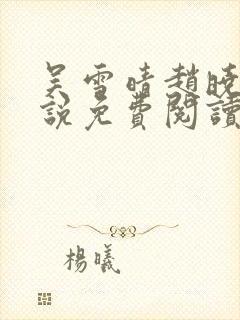 吴雪晴趙曉
說免費閱讀
楊曦